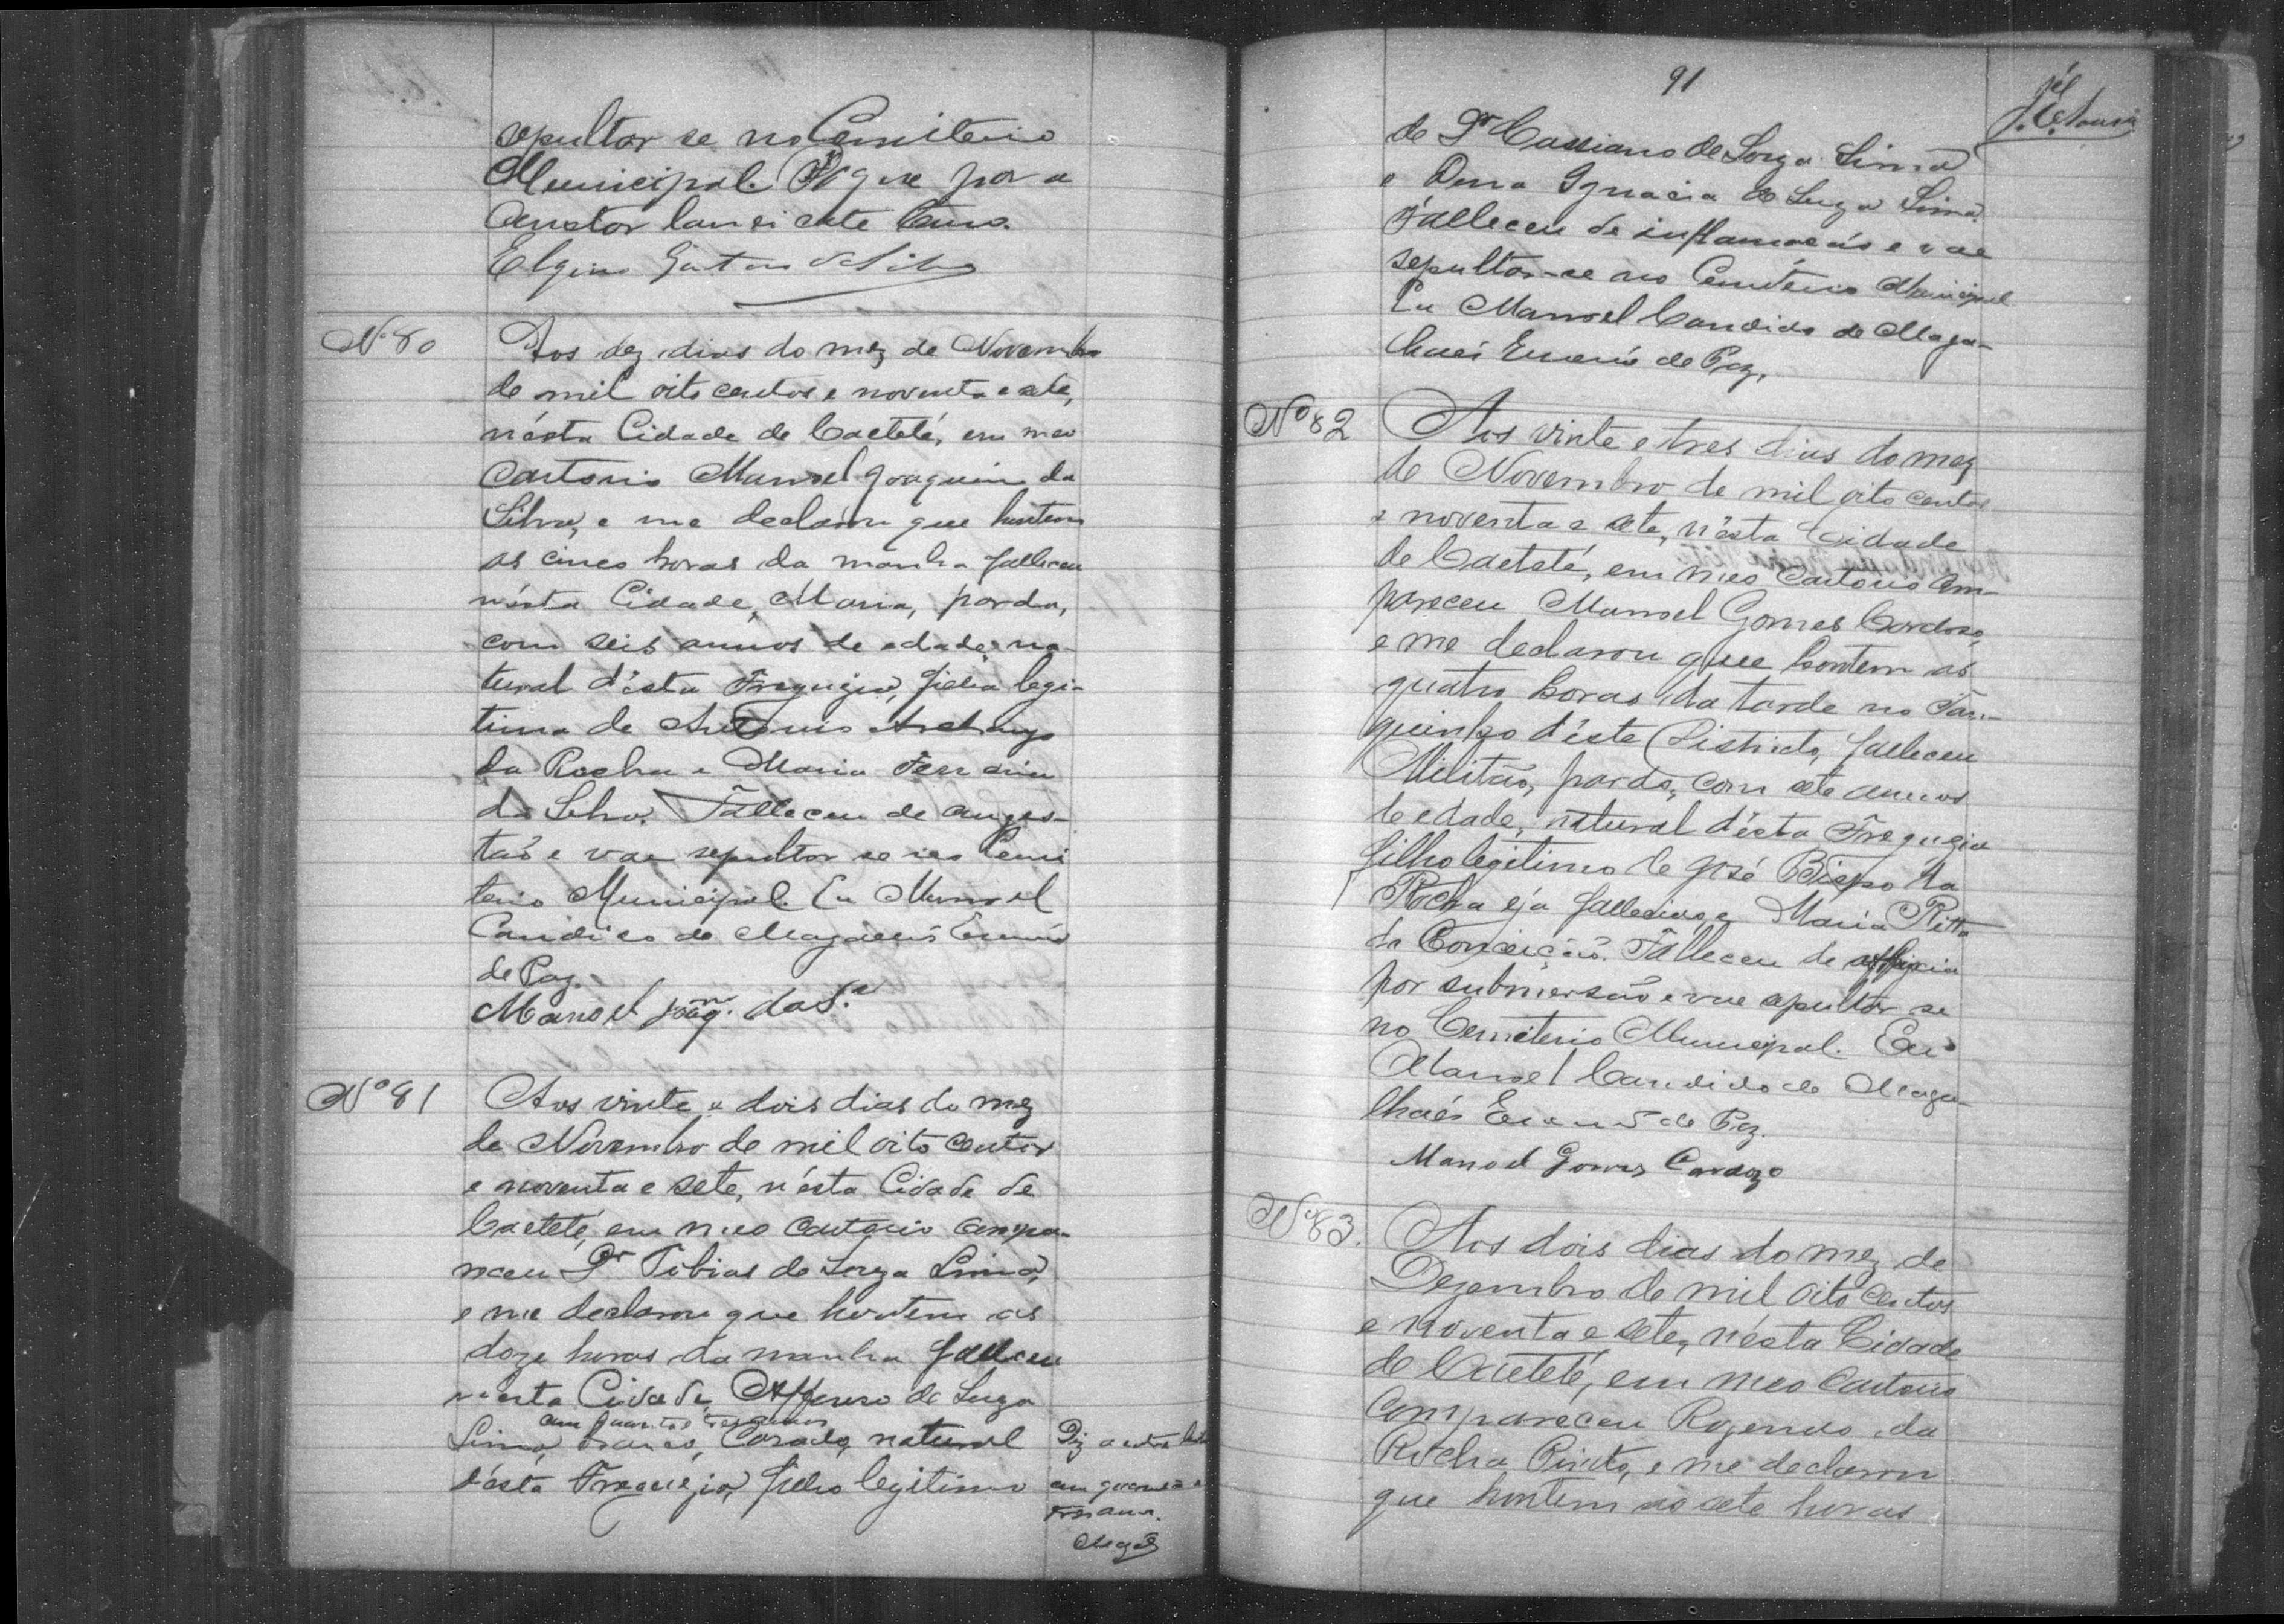 sepultar se no Cemiterio
Municipal. E que para
constar lancei este termo.
Elgino
Nº 80
Aos dez dias do mez de Novembro
de mil oito centos e noventa e sete,
nésta Cidade de Caeteté, em meo
Cartorio Manoel Joaquim da
Silva, e me declarou que hontem
as cinco horas da manhã falleceu
nésta Cidade, Maria, parda,
com seis annos de edade, na-
tural d'ésta Freguezia, filha legi-
tima de Antonio Archanjo
da Rocha e Maria
da Silva. Falleceu de conges-
tão e vae sepultar se no Cemi
terio Municipal. Eu Manoel
Candido de Magalhães Escrivão
de Paz.
Manoel Joaqm. da Sª
Nº 81
Aos vinte e dois dias do mez
de Novembro de mil oito centos
e noventa e sete, n'ésta Cidade de
Caeteté, em meo Cartorio compa-
receu Dr Tobias de Souza Lima,
e me declarou que hontem as
doze horas da manhã falleceu
nesta Cidade, Affonso de Souza
com quarenta e tres annos
Lima, branco, Casado, natural
d'ésta Freguezia, filho legitimo
Diz a entre linha
com quarenta e
tres annos.
Magães
91
de Dr Cassiano de Souza Lima
e Dona Ignacia de Souza Lima.
Falleceu de inflamação e vae
sepultar-se no Cemiterio Municipal
Eu Manoel Candido de Maga-
lhães Escrivão de Paz.
Nº 82
Aos vinte e tres dias do mez
de Novembro de mil oito centos
e noventa e sete, n'ésta Cidade
de Caeteté, em meo Cartorio com-
pareceu Manoel Gomes Cardoso,
e me declarou que hontem as
quatro horas da tarde no Tan-
quinho d'éste Districto, falleceu
Militão, pardo, com sete annos
de edade, natural d'ésta Freguezia
filho legitimo de José Bispo da
Rocha já fallecido, e Maria Ritta
da Conceição. Falleceu de asfixia
por submersão e vae sepultar se
no Cemiterio Municipal. Eu
Manoel Candido de Maga-
lhães Escrivão de Paz.
Manoel Gomes Cardozo
Nº 83.
Aos dois dias do mez de
Dezembro de mil oito centos
e noventa e sete, nésta Cidade
de Caeteté, em meo Cartorio
compareceu Rozendo da
Rocha Pinto, e me declarou
que hontem as sete horas